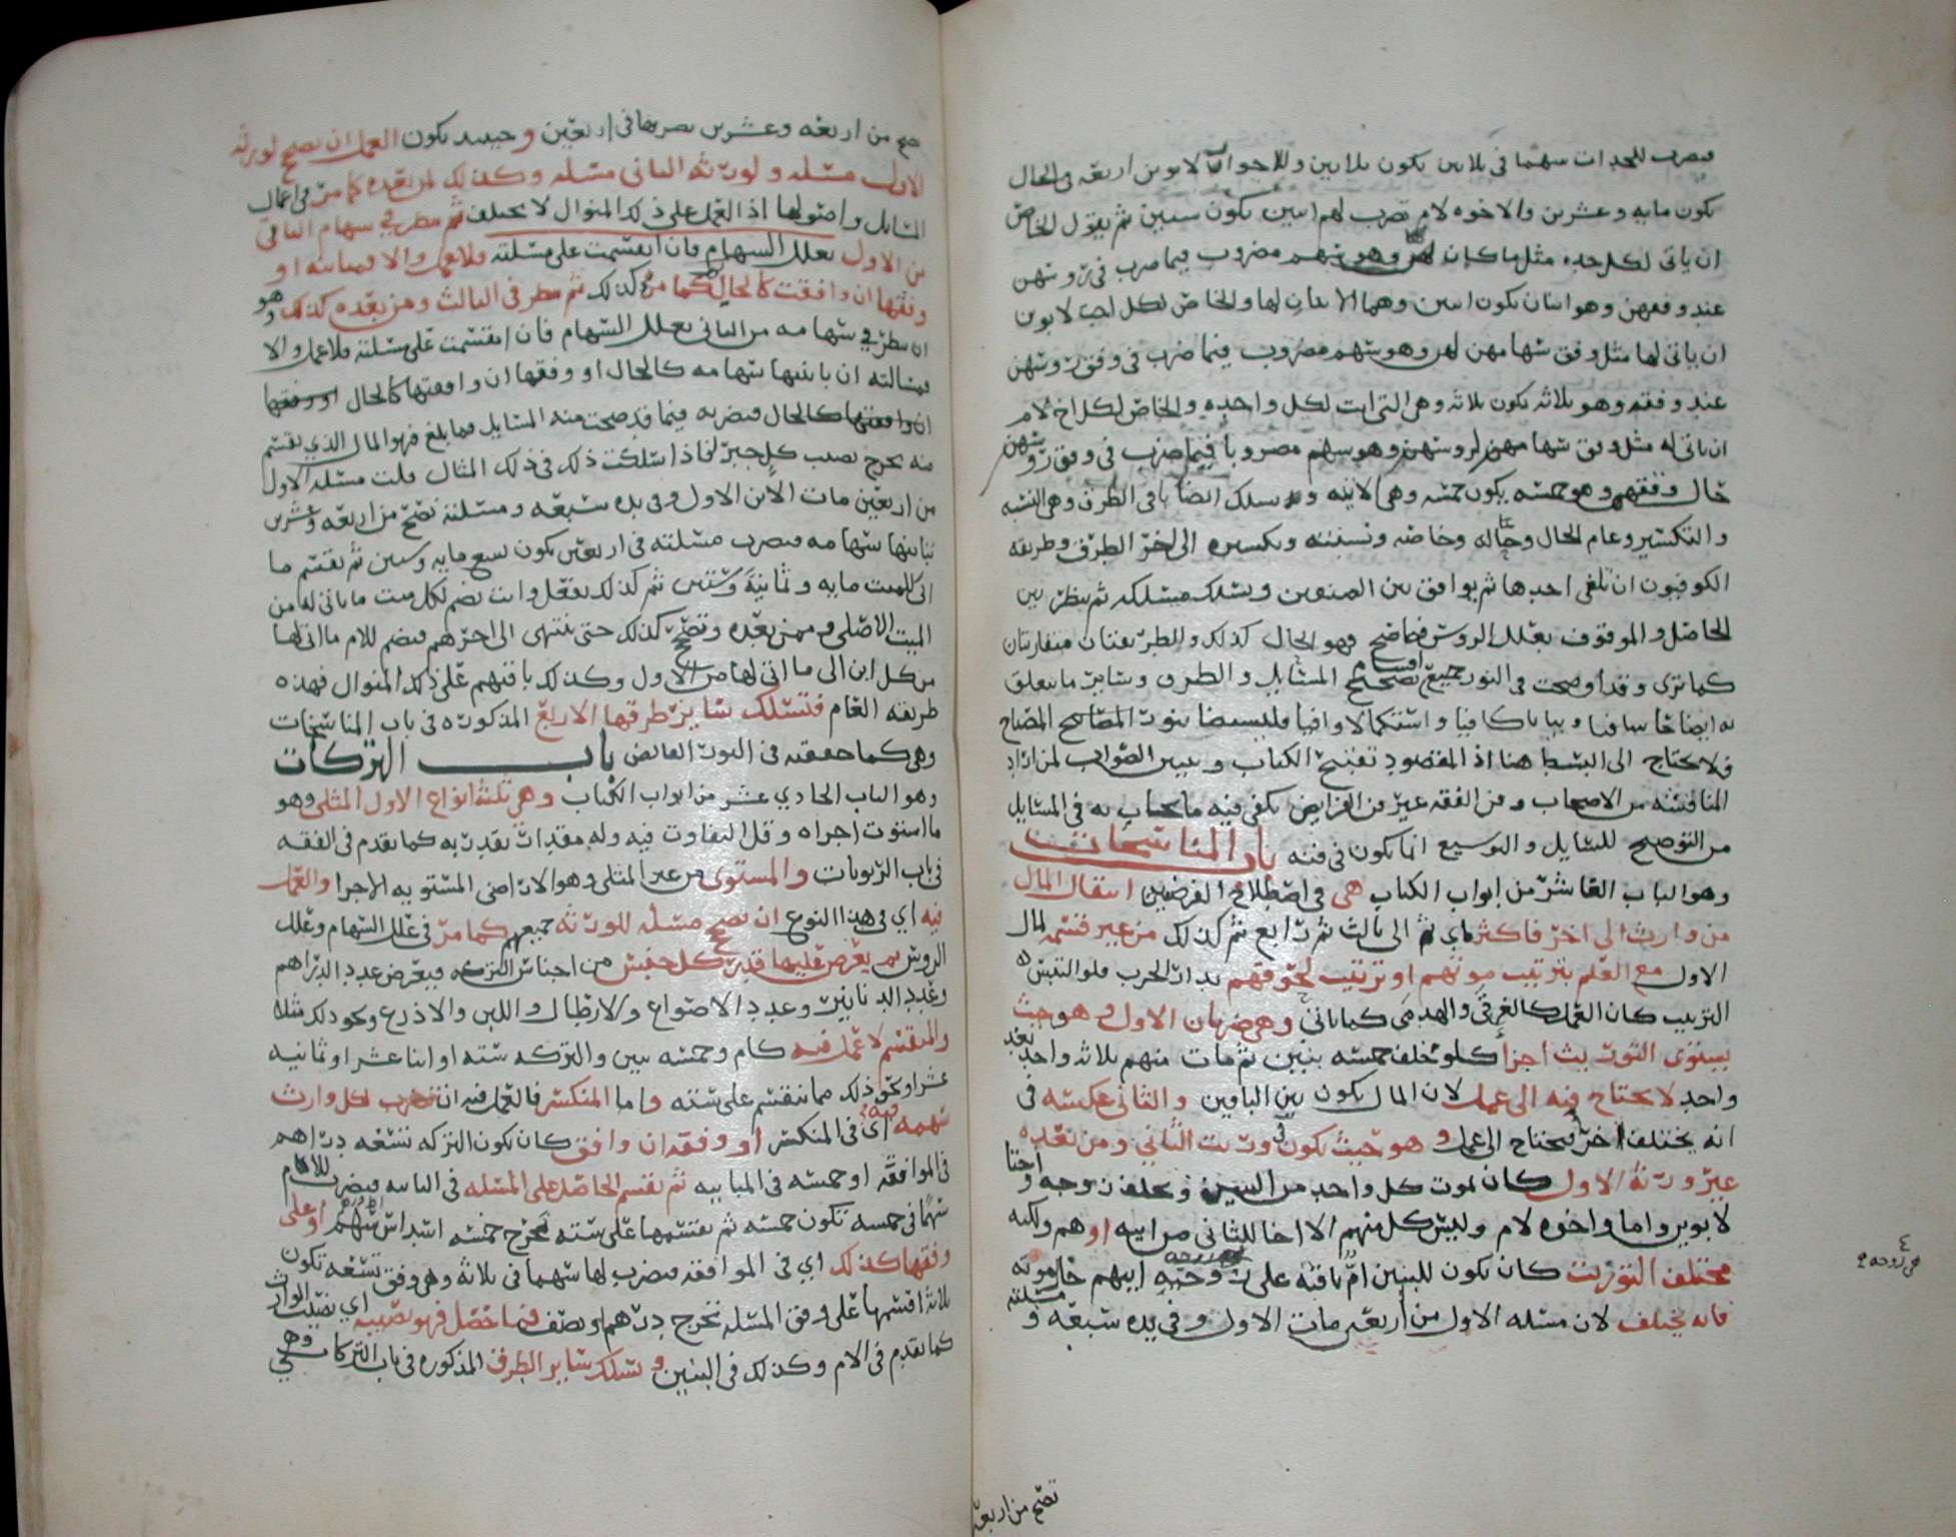 فيضرب للجدات سهما في ثلاثين يكون ثلاثين وللاخوات لابوين اربعه في الحال
يكون مايه وعشرين والاخوه لام تضرب لهم اثنين يكون ستين ثم يقول الخاص
ان ياتي لكل جده مثل ما كان لهن وهو سهم مضروب فيما ضرب في روسهن
عند وفقهن وهو اثنان يكون اثنين وهما الاتيان لها والخاص لكل اخت لابوين
ان ياتي لها مثل وفق سهامهن لهن وهو سهم مضروب فيما ضرب في وفق روسهن
عند وفقه وهو ثلاثه يكون ثلاثه وهي التي اتت لكل واحده والخاص لكل اخ لام
ان ياتي له مثل وفق سهامهن لروسهن وهو سهم مضروبا فيما ضرب في وفق روسهن
حال وفقهم وهو خمسه يكون خمسه وهي الاتيه وتسلك ايضا باقي الطرق وهي النسبه
والتكسير وعام الحال وخاصه ونسبته وتكسيره الى اخر الطرق وطريقه
الكوفيون ان تلغي احدها ثم يوافق بين الصنوين وتسلك مسلكه ثم ينظر بين
الحاصل والموقوف بعلل الروس فما صح فهو الحال كذلك والطريقتان متقاربتان
كما ترى وقد اوضحت في النور جميع اقسام تصحيح المسايل والطرق وساير ما يتعلق
به ايضاحا شافيا وبيانا كافيا واستكمالا وافيا فليستضا بنور المصابيح المضاح
فلا يحتاج الى البسط هنا اذ المقصود تنقيح الكتاب وتبيين الصواب لمن اراد
المنافسه من الاصحاب وفن الفقه غير فن الفرايض يكفي فيه ما يجاب به في المسايل
من التوضيح للسايل والتوسيع انما يكون في فنه باب المناسخات
وهو الباب العاشر من ابواب الكتاب هي في اصطلاح الفرضيين انتقال المال
من وارث الى اخر فاكثر اي ثم الى ثالث ثم رابع ثم كذلك من غير قسمه لمال
الاول مع العلم بترتيب موتهم او ترتيب لحوقهم بدار الحرب فلو التبس
الترتيب كان العمل كالغرقى والهدمى كما ياتي وهي ضربان الاول وهو حيث
يستوي التوريث اجزا كلو خلف خمسه بنين ثم مات منهم ثلاثه واحد بعد
واحد لا يحتاج فيه الى عمل لان المال يكون بين الباقين والثاني عكسه في
انه يختلف اخر فيحتاج الى عمل وهو حيث يكون في ورثت الثاني ومن بعده
غير ورثة الاول كان يموت كل واحد من البنين ويخلف زوجه واختا
لابوين واما واخوه لام وليس كل منهم الا اخا للثاني من ابيه او هم ولكنه
مختلف التوريث كان يكون للبنين ام باقيه على زوجيه ابيهم حال موته
فانه يختلف لان مسئله الاول من اربعين مات الاول وفي يده سبعه و مسئلته
هي زوجه
تصح من اربعه
صح من اربعه وعشرين تضربها في اربعين وحينئذ يكون العمل ان تصح لورثه
الاول مسئله ولورثه الثاني مسئله وكذلك لمن بعده كما مر في اعمال
المسايل واصولها اذ العمل على ذلك المنوال لا يختلف ثم ينظر في سهام الثاني
من الاول بعلل السهام فان انقسمت على مسئلته فلا عمل والا فمباينه او
وفقها ان وافقت كالحال كما مر كذلك ثم ينظر في الثالث ومن بعده كذلك وهو
ان ينظر في سهامه من الثاني بعلل السهام فان انقسمت على مسئلته فلا عمل والا
فمسالته ان باينتها سهامه كالحال او وفقها ان وافقتها كالحال
ان وافقتها كالحال فيضربه فيما قد صحت منه المسايل فما بلغ فهو المال الذي يقسم
منه يخرج نصيب كل حيز فاذا سلكت ذلك في ذلك المثال قلت مسئله الاول
من اربعين مات الابن الاول وفي يده سبعه ومسئلته تصح من اربعه وعشرين
تباينها سهامه فيضرب مسئلته في اربعين يكون تسع مايه وستين ثم يقسم ما
اتى للميت مايه وثمانية وستين ثم كذلك يفعل وان تضم لكل ميت ما ياتي له من
الميت الاصلي وممن بعده وتصح كذلك حتى ينتهي الى اخرهم فيضم للام ما اتى لها
من كل ابن الى ما اتى لها من الاول وكذلك باقيهم على ذلك المنوال فهذه
طريقه العام فتسلك ساير طرقها الاربع المذكوره في باب المناسخات
وهي كما حققته في النور الفايض باب التركات
وهو الباب الحادي عشر من ابواب الكتاب وهي ثلثة انواع الاول المثلي وهو
ما استوت اجزاه وقل التفاوت فيه وله مقدرات تقدر به كما تقدم في الفقه
في باب الربويات والمستوى من غير المثلي وهو الاراضي المستويه الاجزا والعمل
فيه اي في هذا النوع ان تصح مسئله للورثه جميعهم كما مر في علل السهام وعلل
الروس ثم يعرض عليها قدر كل جنس من اجناس التركه فيعرض عدد الدراهم
وعدد الدنانير وعدد الاصواع والارطال واللبن والاذرع ونحو ذلك مثلا
والمنقسم لا عمل فيه كام وخمسه بنين والتركه سته او اثنا عشر او ثمانيه
عشر او نحو ذلك مما ينقسم على سته واما المنكسر فالعمل فيه ان تضرب لكل وارث
سهمه فيه اي في المنكسر او وفقه ان وافق كان تكون التركه تسعه دراهم
في الموافقه او خمسه في المباينه ثم تقسم الحاصل على المسئله في المباينه فيضرب للام
سهما في خمسه تكون خمسه ثم تقسمها على سته تخرج خمسه اسداس درهم او على
وفقها كذلك اي في الموافقه فيضرب لها سهما في ثلاثه وهي وفق تسعه تكون
ثلاثه اقسمها على وفق المسئله تخرج درهم ونصف فما حصل فهو نصيبه اي نصيب الوارث
كما تقدم في الام وكذلك في البنين وتسلك ساير الطرق المذكوره في باب التركات وهي